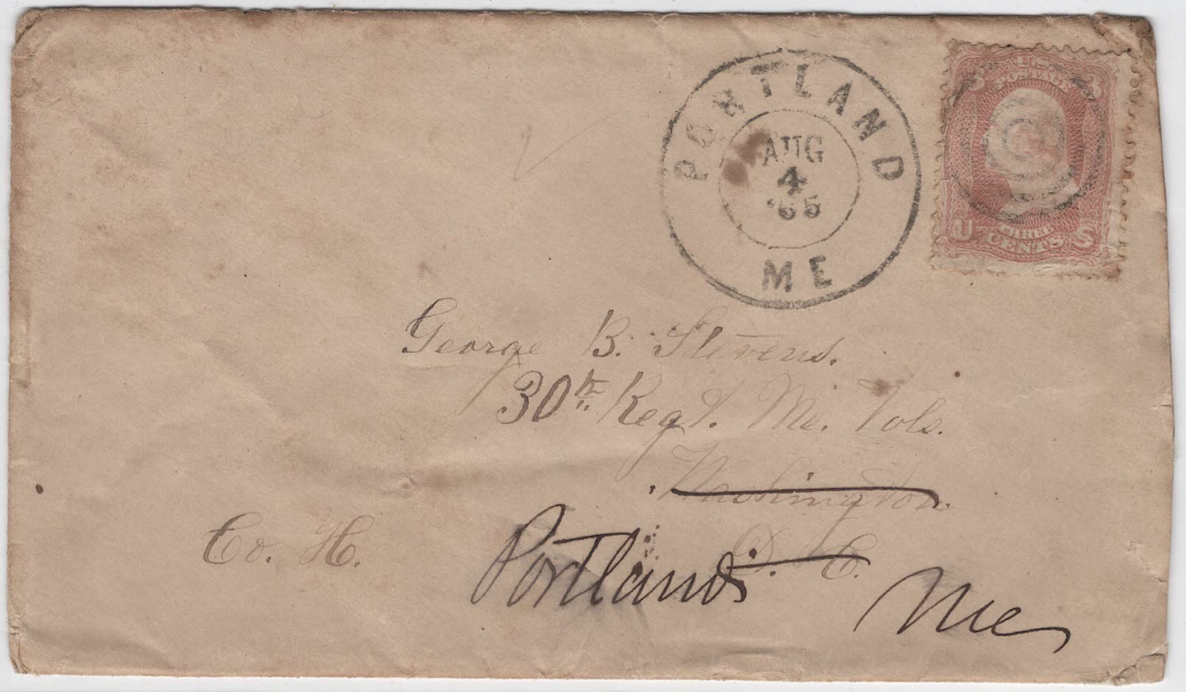 PORTLAND
AUG
4
'65
ME
3 U.S. 3
POSTAGE
U THREE S
CENTS
George B. Stevens.
30th Regt. Me. Vols.
Washington
D. C.
Co. H.
Portland Me